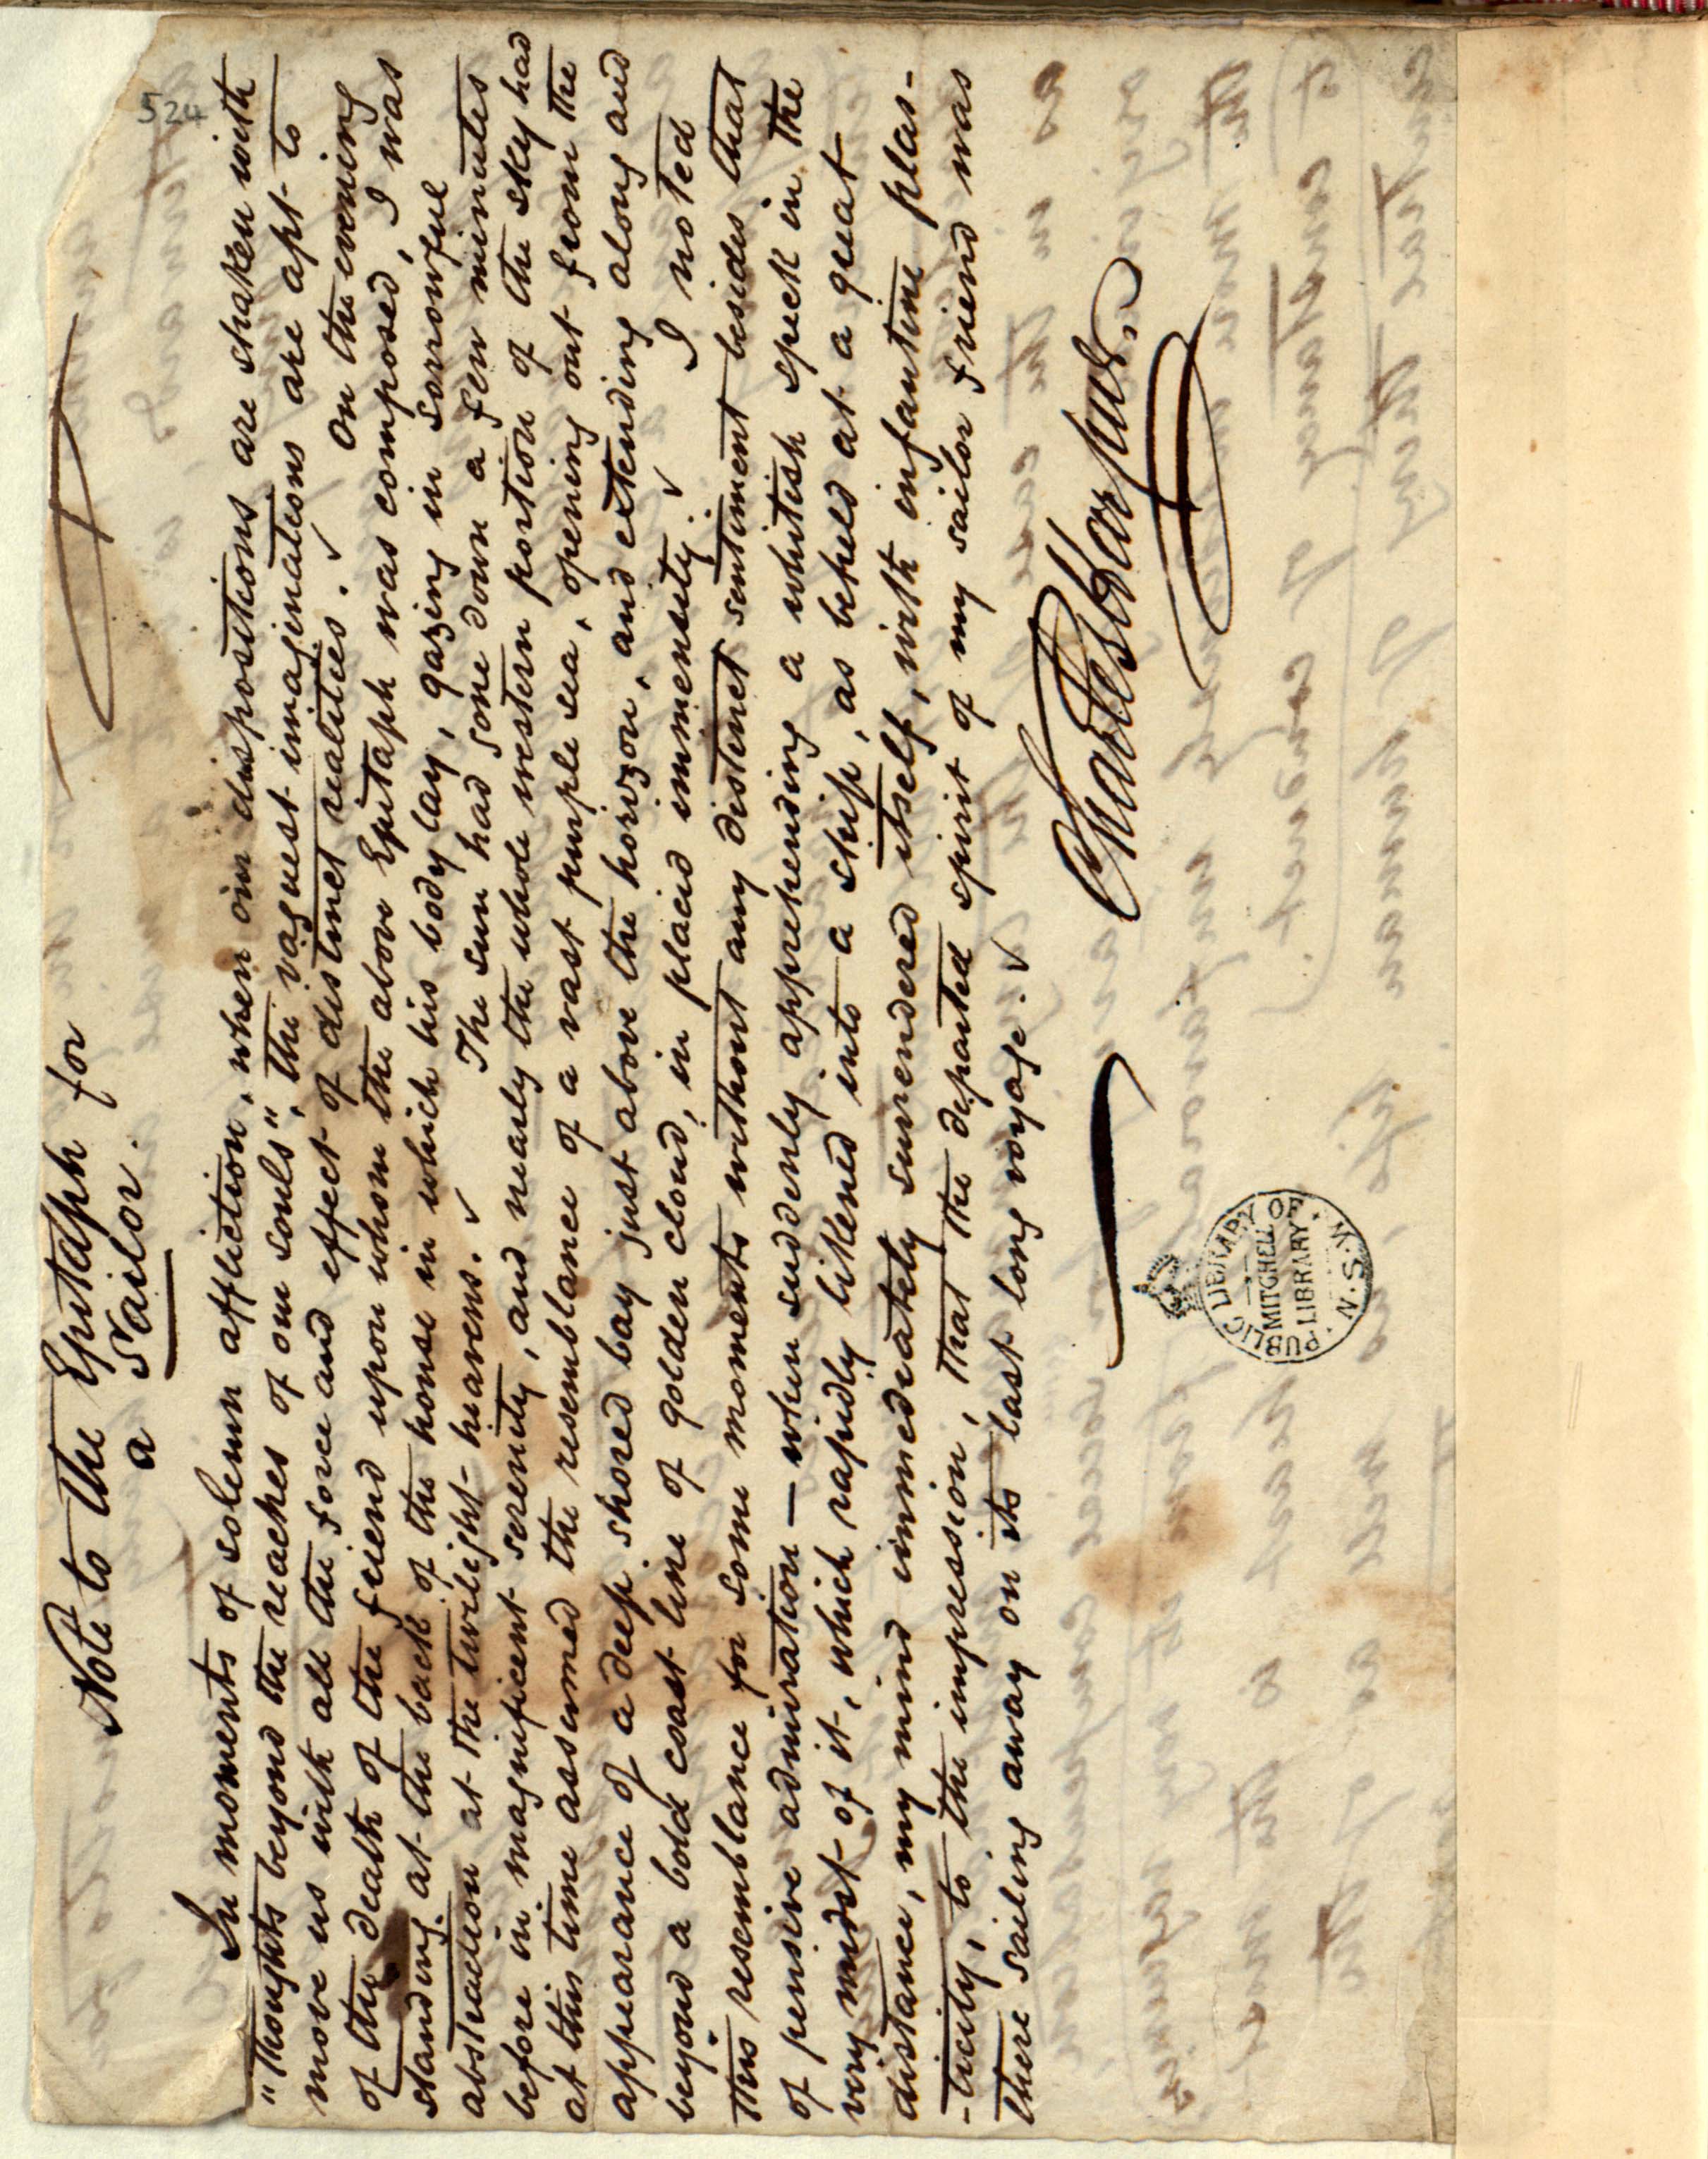 524
Note to the Epitaph for
a Sailor.
In moments of solemn affliction, when our dispositions are shaken with
"thoughts beyond the reaches of our souls", the vaguest imaginations are apt to
move us with all the force and effect of distinct realities. On the evening
of the death of the friend upon whom the above Epitaph was composed, I was
standing at the back of the house in which his body lay, gazing in sorrowful
abstraction at the twilight heavens. The sun had gone down a few minutes
before in magnificent serenity, and nearly the whole western portion of the sky had
at this time assumed the resemblance of a vast purple sea, opening out from the
appearance of a deep shored bay just above the horizon, and extending along and
beyond a bold coast line of golden cloud, in placid immensity. I noted
this resemblance for some moments without any distinct sentiment besides that
of pensive admiration — when suddenly apprehending a whitish speck in the
very midst of it, which rapidly likened into a ship, as beheld at a great
distance, my mind immediately surrendered itself, with infantine plas-
-ticity, to the impression, that the departed spirit of my sailor friend was
there sailing away on its last long voyage.
Charles Harpur.
PUBLIC LIBRARY OF N.S.W.
MITCHELL
LIBRARY